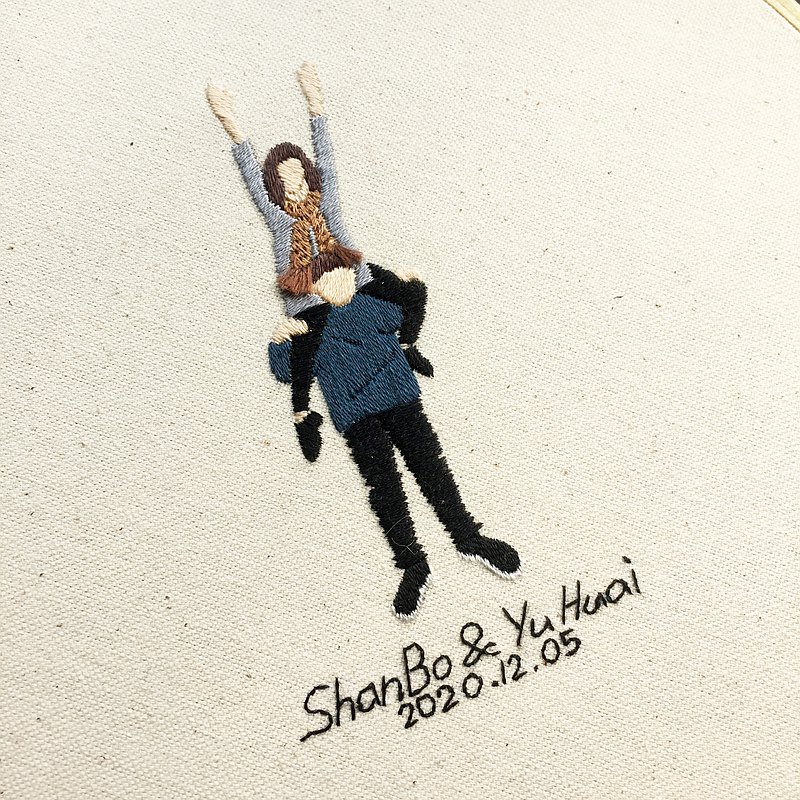 ShanBo & Yu Huai
2020.12.05